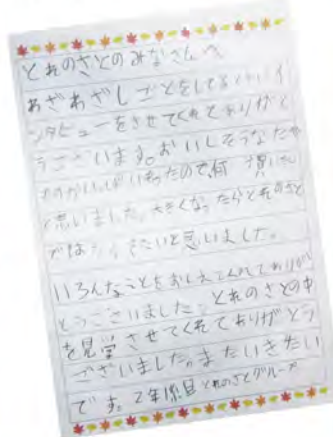 とれのさとのみなさんへ
わざわざしごとをしてるときにイ
ンタビューをさせてくれてありがと
うございます。おいしそうなたべ
ものがいっぱいあったので、何 買いたい
と思いました。大きくなったらとれのさと
ではたらきたいと思いました。
いろんなことをおしえてくれてありが
とうございました。とれのさとの中
を見学させてくれてありがとう
ございました。またいきたい
です。2年 とれのさとグループ